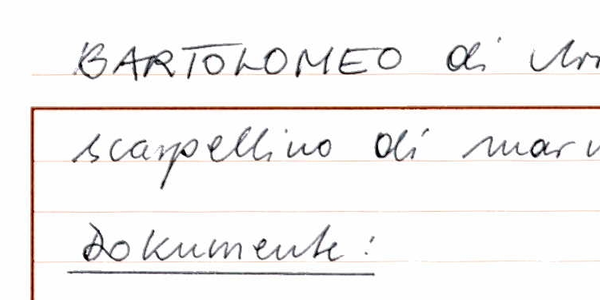 BARTOLOMEO di
scarpellino di
Dokumente: